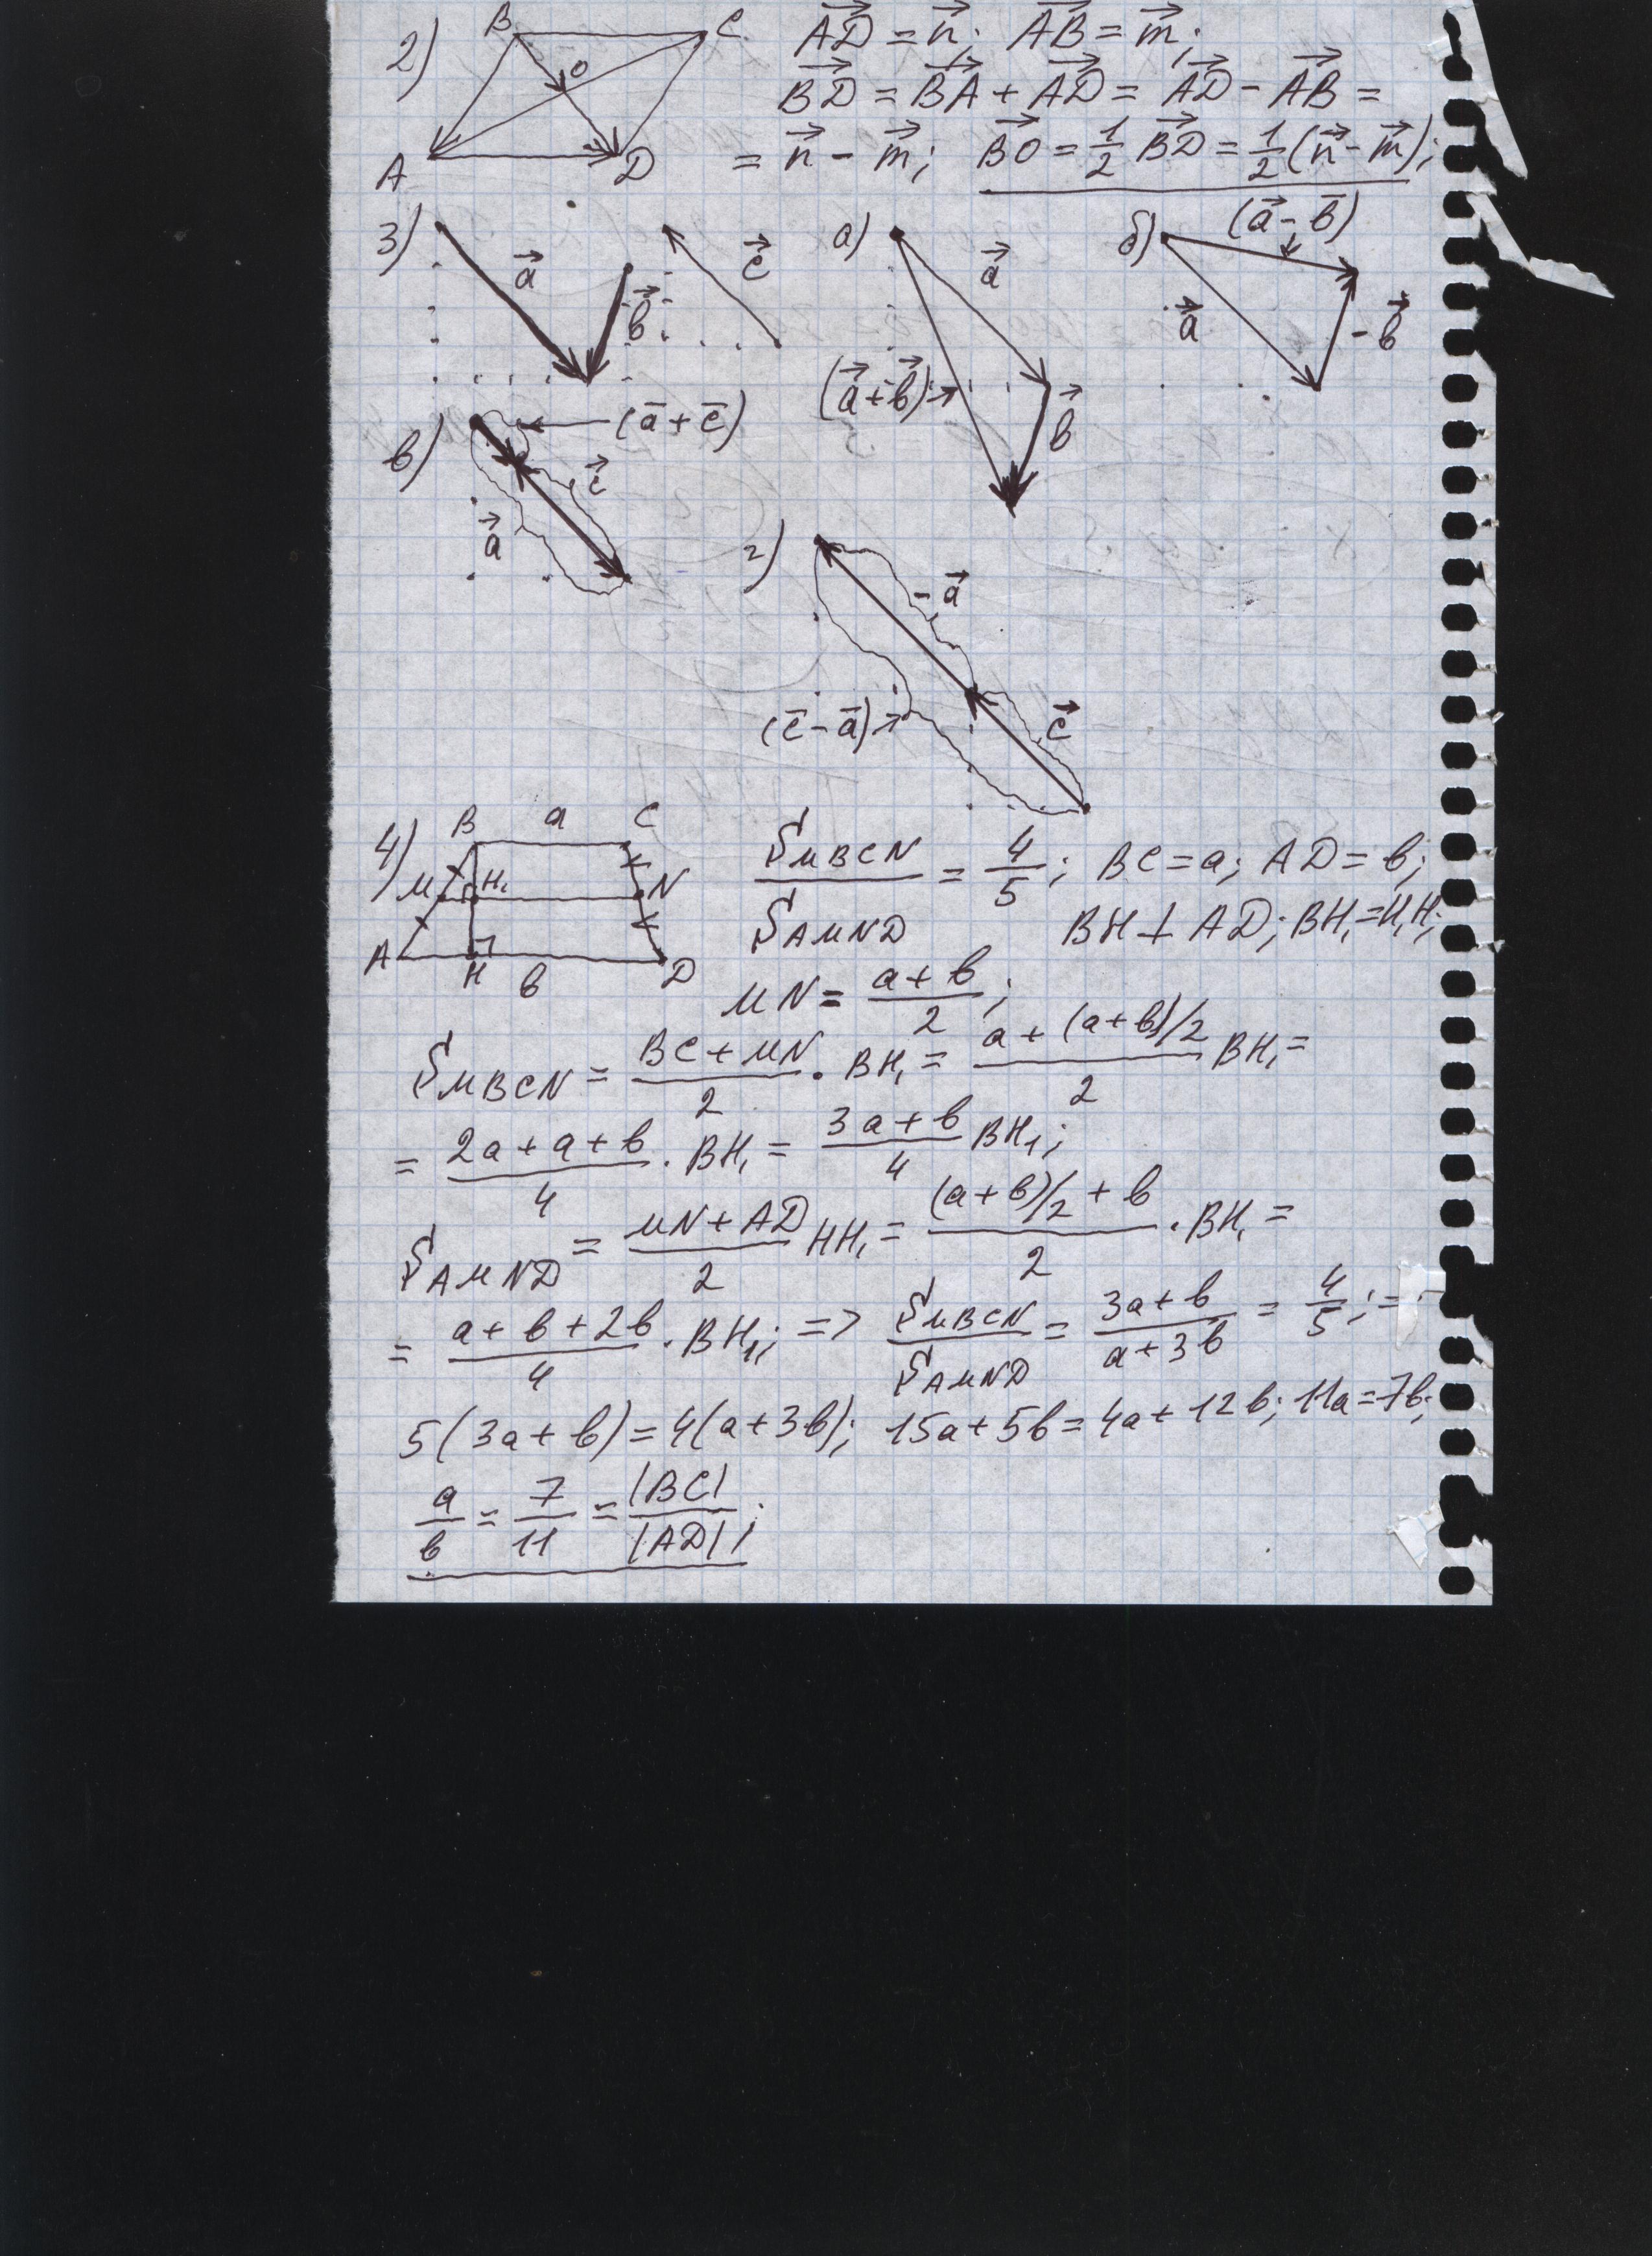 2) B C O A D
AD = n; AB = m;
BD = BA + AD = AD - AB =
= n - m; BO = 1/2 BD = 1/2 (n - m);
3) a b c
а) a b (a + b)
б) (a - b) a -b
в) (a + c) c a
г) -a (c - a) c
4) B a C M H₁ N A H b D
S MBCN / S AMND = 4/5; BC = a; AD = b;
BH ⊥ AD; BH₁ = H₁H;
MN = (a + b)/2;
S MBCN = (BC + MN)/2 · BH₁ = (a + (a + b)/2)/2 BH₁ =
= (2a + a + b)/4 · BH₁ = (3a + b)/4 BH₁;
S AMND = (MN + AD)/2 HH₁ = ((a + b)/2 + b)/2 · BH₁ =
= (a + b + 2b)/4 · BH₁; => S MBCN / S AMND = (3a + b)/(a + 3b) = 4/5; =
5(3a + b) = 4(a + 3b); 15a + 5b = 4a + 12b; 11a = 7b;
a/b = 7/11 = |BC|/|AD|;